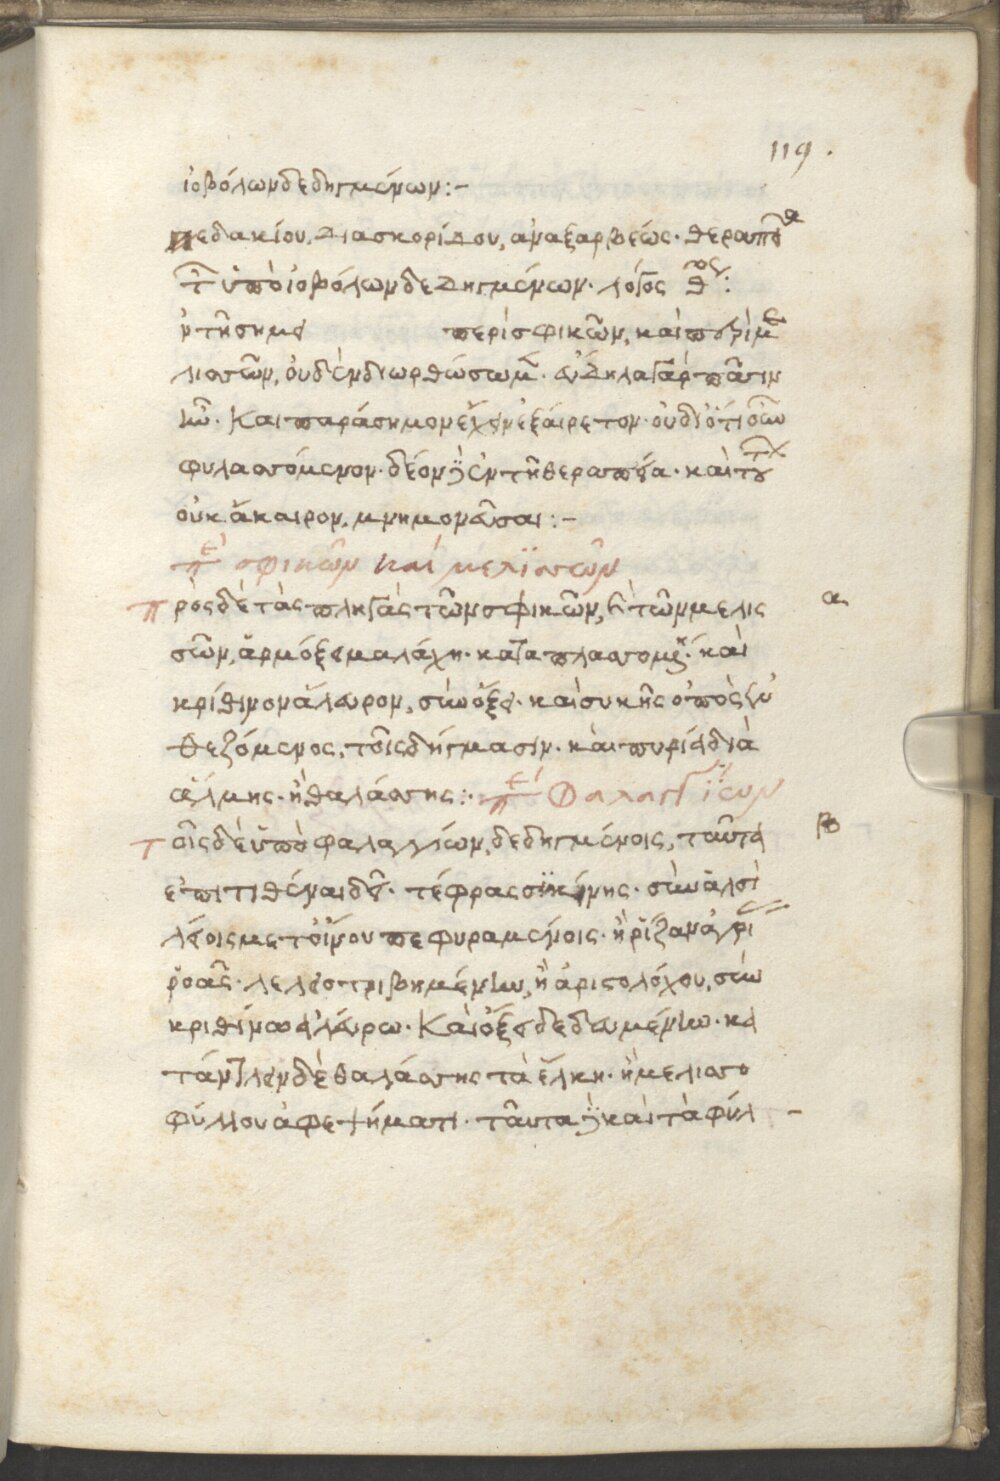 119.
ἰοβόλων δεδηγμένων:-
πεδακίου, διασκορίδου, αναξαρβέως. θεραπεία
τῶν ὑπὸ ἰοβόλων δεδηγμένων. λόγος θος:
ἐν τῆ σημε περὶ σφικῶν, καὶ περὶ με
λισσῶν, οὐδὲν διωρθώσωμεν. εὔδηλα γὰρ πᾶσιν
ἦν. Και παράσημον εἶχεν ἐξαίρετον. οὐδὲ ὅτι οὖν
φυλασσόμενον. δέον δὲ ἐν τῆ θεραπεία. καὶ τούτων
οὐκ ἄκαιρον, μνημονεῦσαι:-
περὶ σφικῶν καὶ μελϊσσῶν
πρὸς δὲ τὰς πληγὰς τῶν σφικῶν, καὶ τῶν μελισ α
σῶν, ἁρμόξει μαλάχη. καταπλασσομένη. καὶ
κρίθινον ἄλευρον, σὺν ὄξει. καὶ συκῆς ὀπὸς ἐν
θεζόμενος, τοῖς δήγμασιν. καὶ πυρία διὰ
ἅλμης. ἢ θαλάσσης:. περὶ Φαλαγγΐων
τοῖς δὲ ὑπὸ φαλαγγίων, δεδηγμένοις, ταῦτα β
ἐπιτιθέναι δεῖ. τέφρας συκίνης. σὺν ἁλσὶ
λέοις μετ οἴνου πεφυραμένοις. ἢ ῥίζαν ἀγρί
ῥοᾶς. λελειοτριβημένην, ἢ ἀριστολόχου, σὺν
κριθίνω ἀλεύρω. Καὶ ὄξει δεδευμένην. κα
τάντλειν δὲ θαλάσσης τὰ ἕλκη. ἢ μελισσο
φύλλου ἀφεψήματι. ταῦτα δὲ καὶ τὰ φύλ -